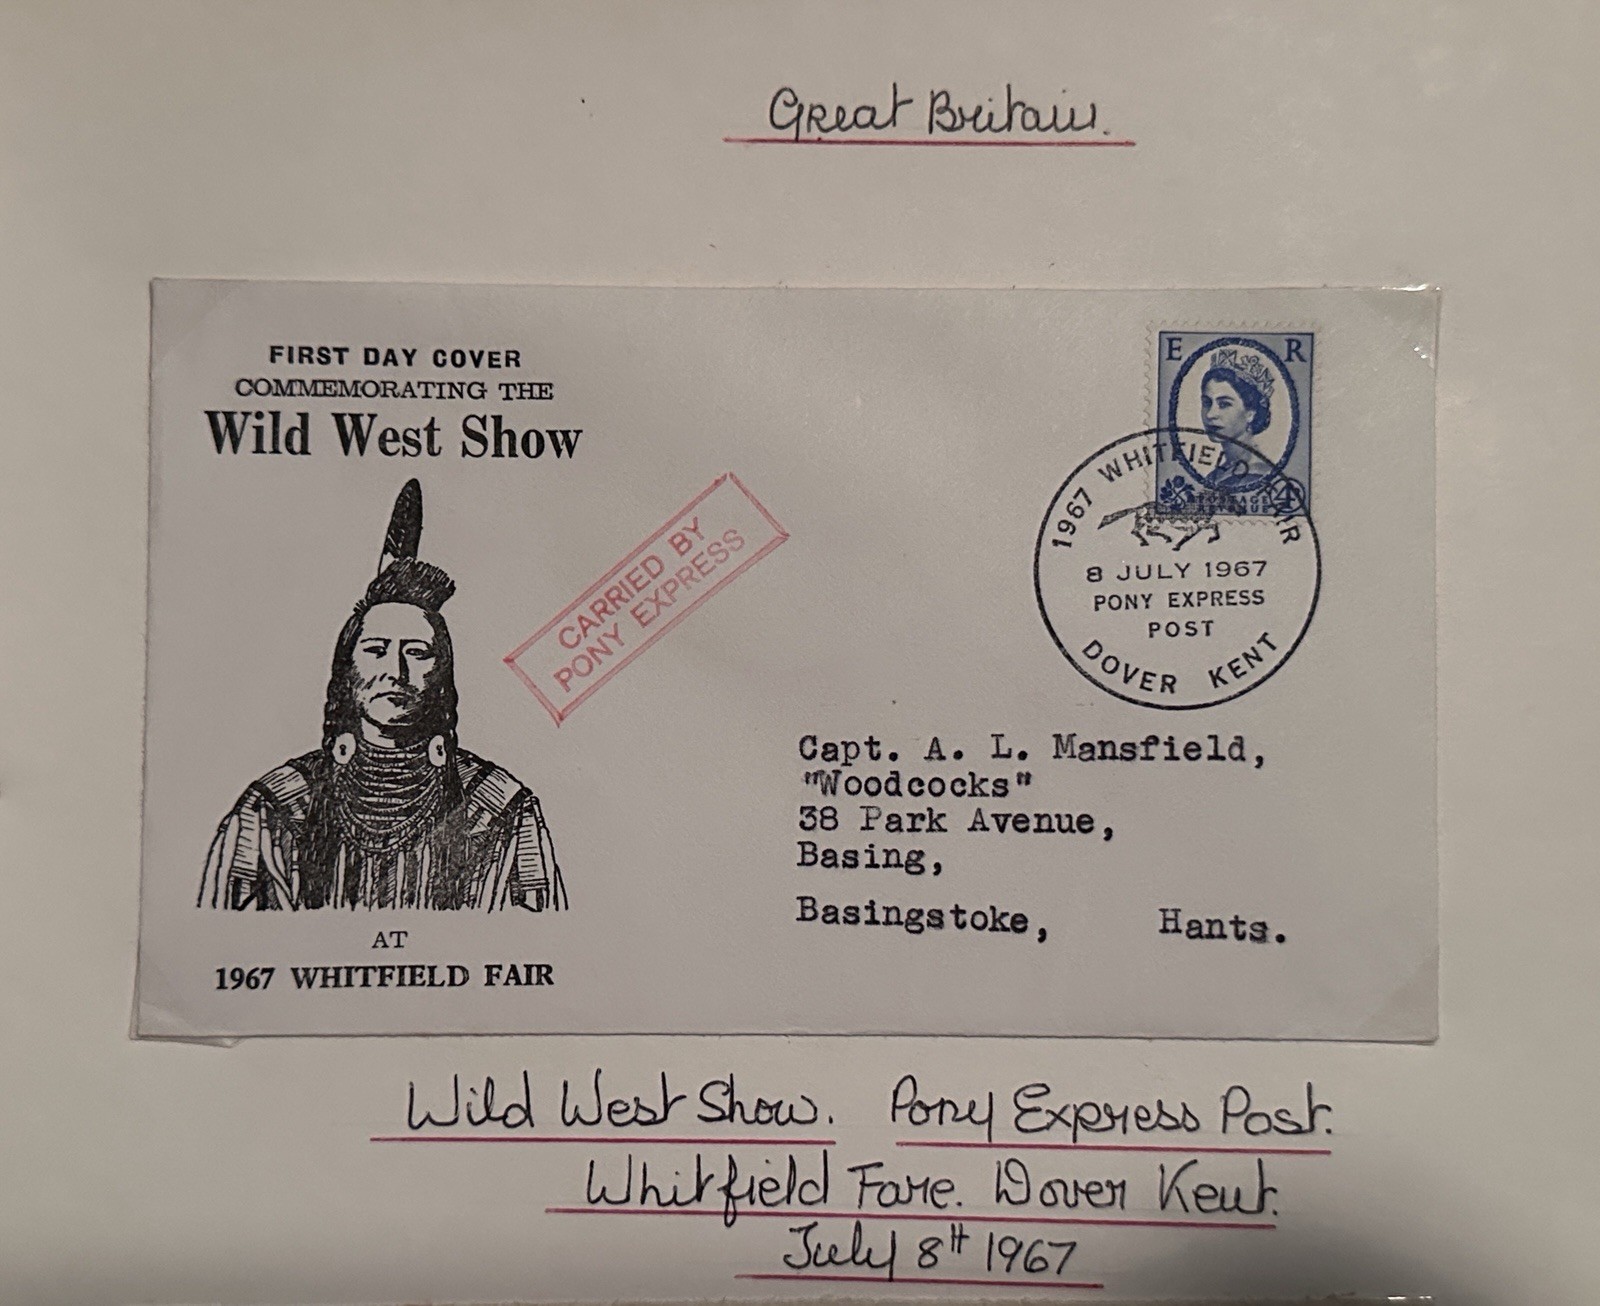 Great Britain.
FIRST DAY COVER
COMMEMORATING THE
Wild West Show
CARRIED BY
PONY EXPRESS
AT
1967 WHITFIELD FAIR
E R
POSTAGE
REVENUE
4D
1967 WHITFIELD FAIR
8 JULY 1967
PONY EXPRESS
POST
DOVER KENT
Capt. A. L. Mansfield,
"Woodcocks"
38 Park Avenue,
Basing,
Basingstoke, Hants.
Wild West Show. Pony Express Post.
Whitfield Fare. Dover Kent.
July 8th 1967